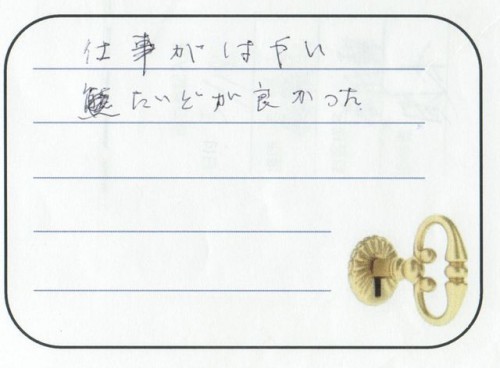 仕事がはやい
たいどが良かった